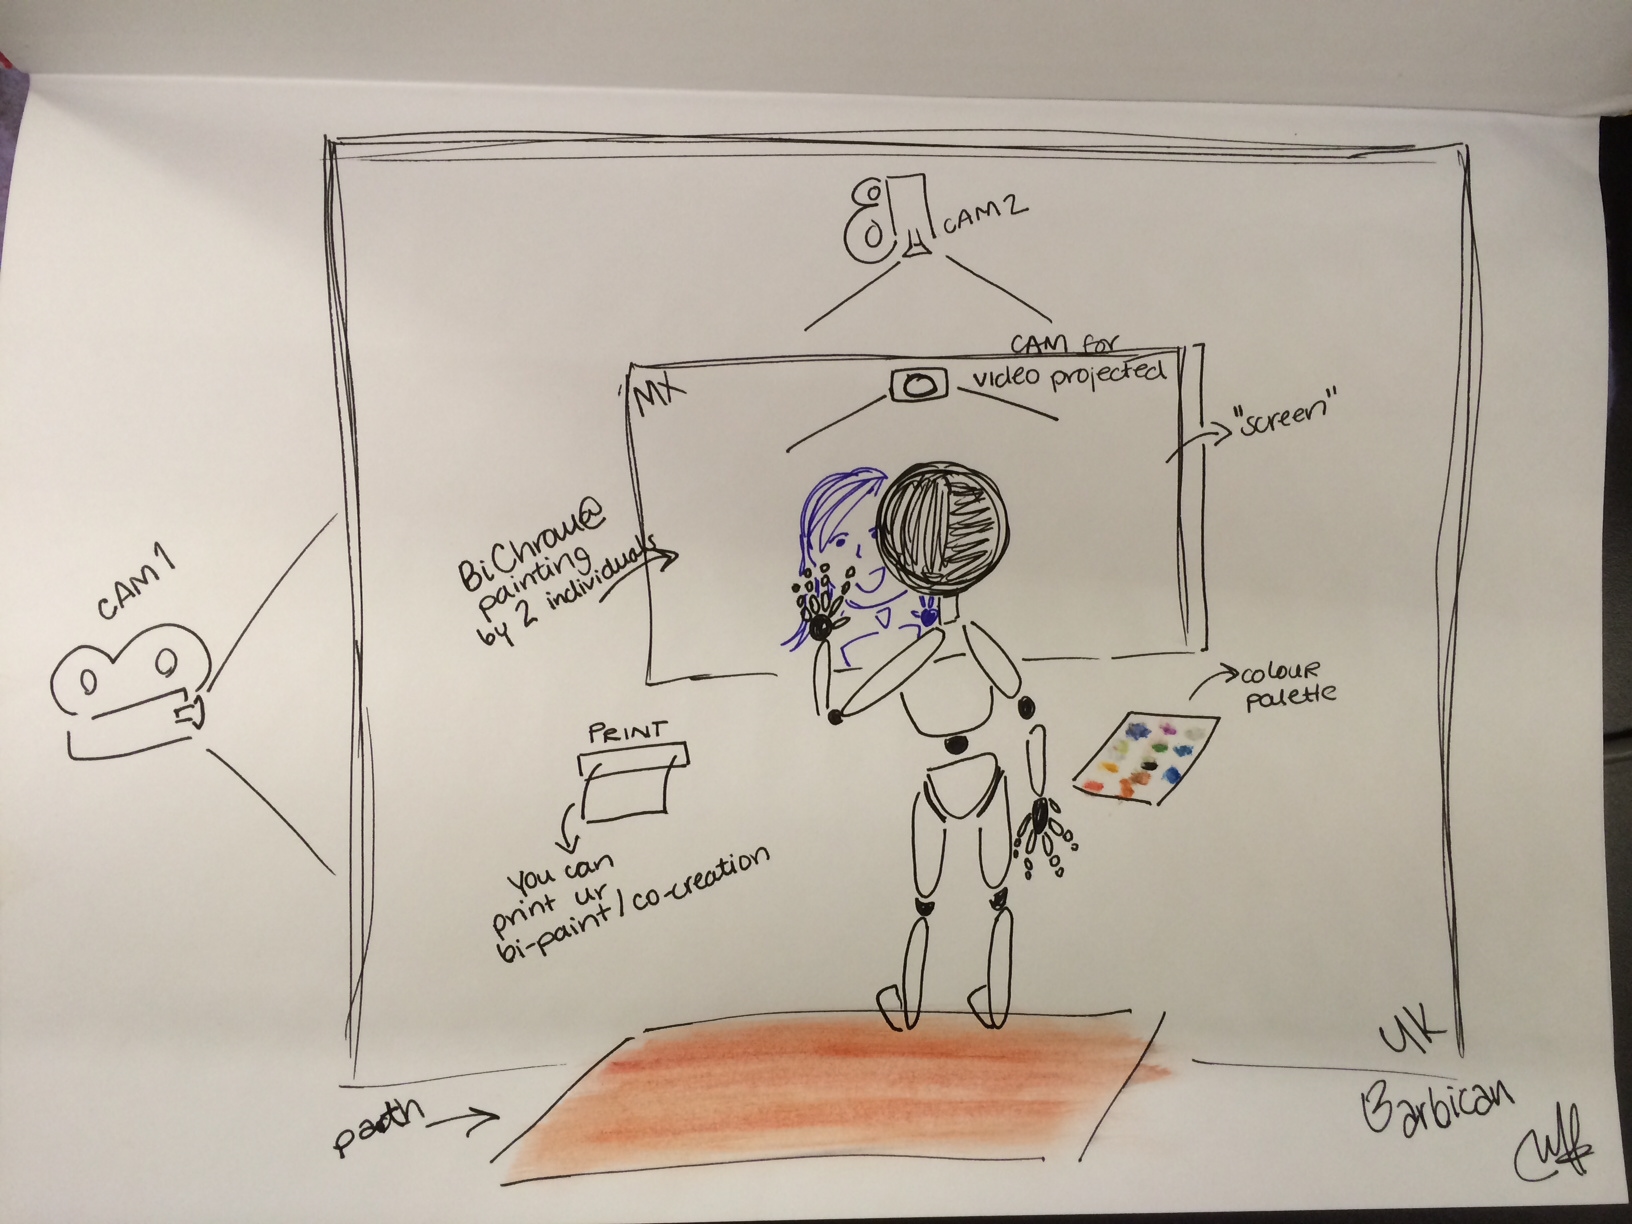 CAM2
CAM for
video projected
MX
"screen"
BiChrom@
painting
by 2 individuals
CAM 1
colour
palette
PRINT
You can
print ur
bi-paint/co-creation
UK
Barbican
path